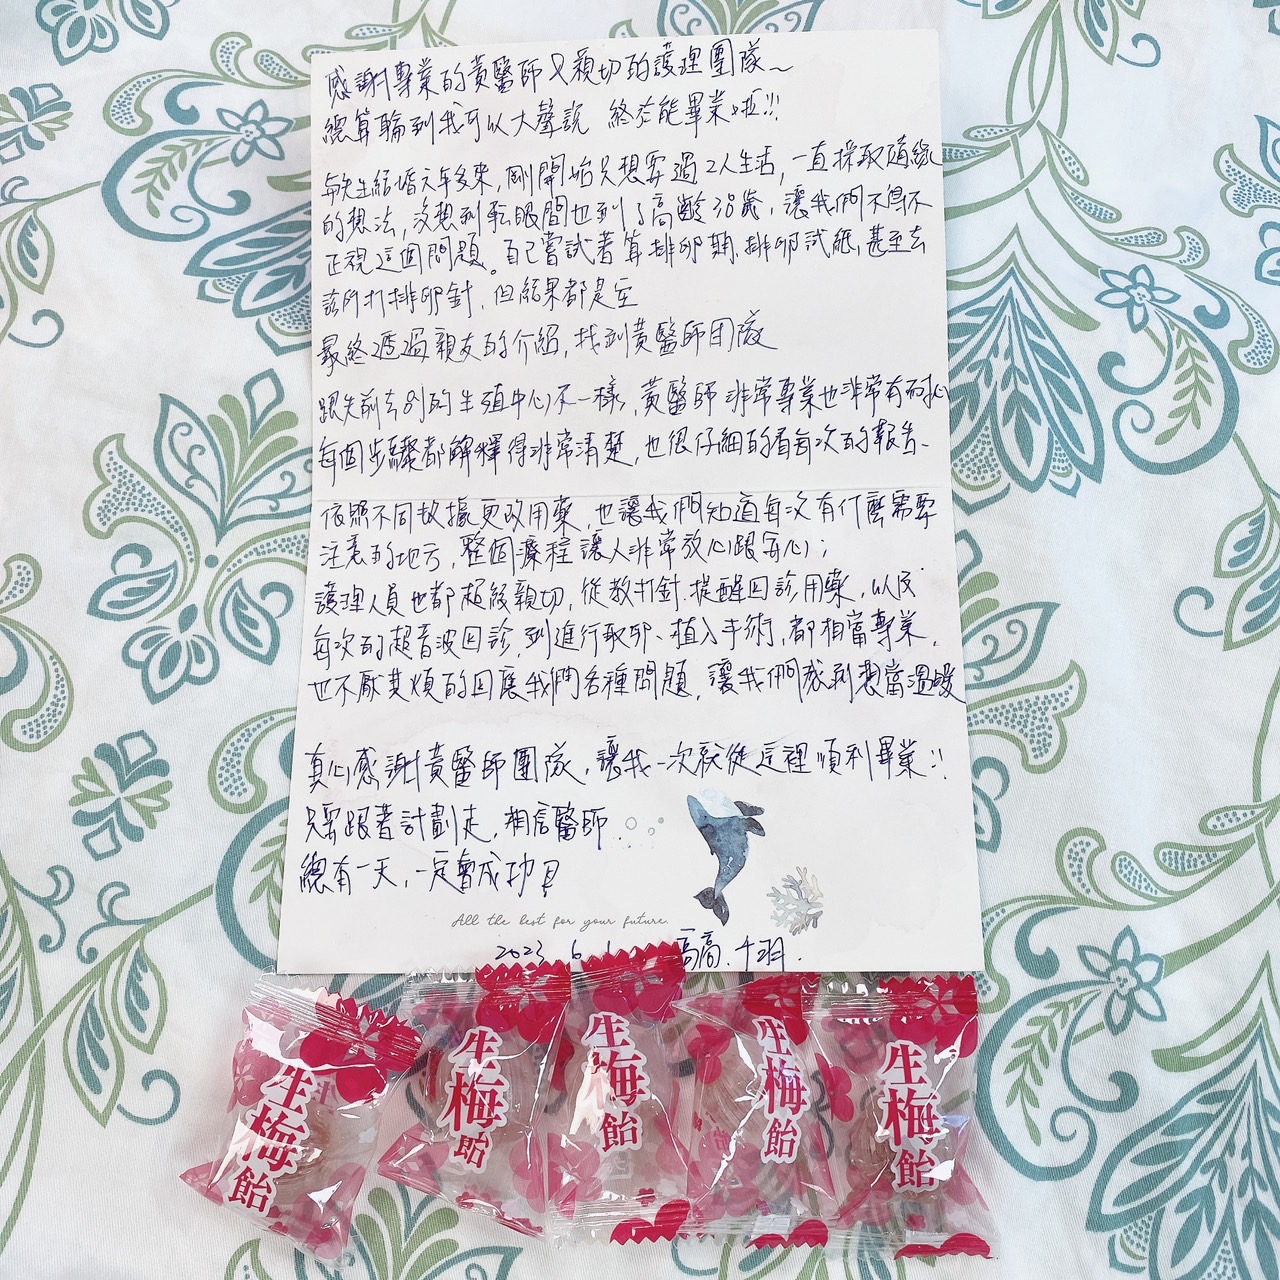 感謝專業的黃醫師又親切的護理團隊~
總算輪到我可以大聲說 終於能畢業啦!!
與先生結婚六年多來,剛開始只想要過2人生活,一直採取隨緣
的想法,沒想到転眼間也到了高齡38歲,讓我們不得不
正視這個問題。自己嘗試著算排卵期、排卵試紙,甚至去
診所打排卵針,但結果都是空
最終透過親友的介紹,找到黃醫師团隊
跟先前去別的生殖中心不一樣,黃醫師非常專業也非常有耐心
每個步驟都解釋得非常清楚,也很仔細的看每次的報告、
依照不同数據更改用藥,也讓我們知道每次有什麼需要
注意的地方,整個療程讓人非常放心跟安心;
護理人員也都超級親切,從教打針.提醒回診用藥,以及
每次的超音波回診,到進行取卵、植入手術,都相當專業,
也不厭其煩的回應我們各種問題,讓我們感到想當溫暖
真心感謝黃醫師團隊,讓我一次就從這裡順利畢業!!
只要跟著計劃走,相信醫師.
總有一天,一定會成功!
All the best for your future.
2023 6 千羽.
生梅飴
生梅飴
生梅飴
生梅飴
生梅飴